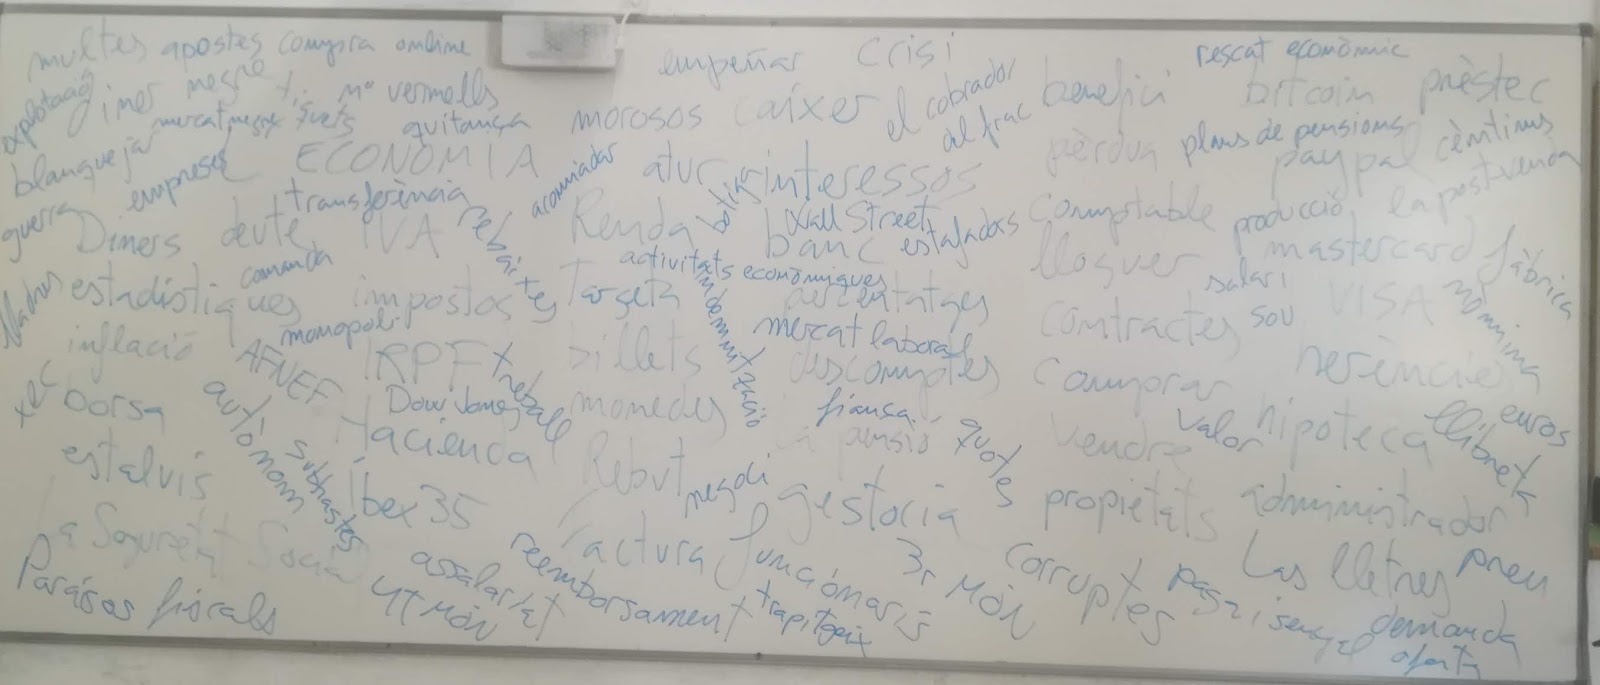 multes apostes compra online
empeñar crisi
rescat econòmic
explotació
diner negre
nº vermells
mercat negre
quitança
morosos caixer
el cobrador
al frac
benefici bitcoin prèstec
blanquejar
empreses
ECONOMIA
acomiadar
atur interessos
pèrdua plans de pensions
paypal cèntims
guerra
transferència
Diners deute IVA
rebaixes
Renda
botiga
Wall Street
banc estafadors
comptable producció la postvenda
lladres
comanda
activitats econòmiques
lloguer mastercard fàbrica
estadístiques impostos Targeta
indemnització
percentatges
salari
contractes sou VISA
nòmina
inflació
monopoli
AFNEF
IRPF
treball
billets
mercat laboral
descomptes
comprar herències
xec
borsa
autònom
Dow Jones
Hacienda
monedes
fiança
la pensió
quotes
vendre
valor
hipoteca
llibreta
euros
estalvis
subhastes
Ibex 35
Rebut
negoci
gestoria
propietats administrador
La Seguretat Social
assalariat
reemborsament
factura funcionaris
3r MÓN
corruptes
Las lletres preu
Parásos fiscals
4T MÓN
demanda
oferta